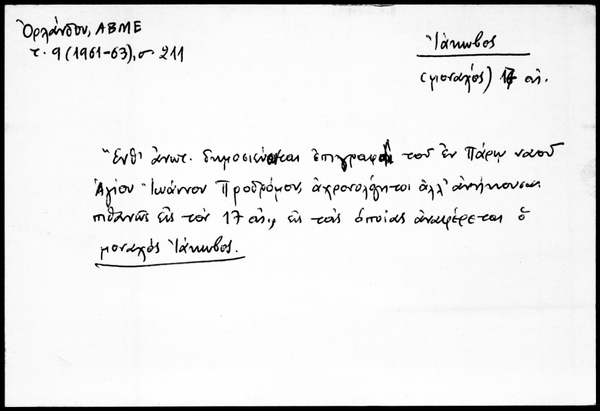 Ὀρλάνδου, ΑΒΜΕ
τ. 9 (1961-63), σ 211
Ἰάκωβος
(μοναχός) 17 αἰ.
Ἔνθ' ἀνωτ. δημοσιεύονται ἐπιγραφαὶ τοῦ ἐν Πάρῳ ναοῦ
Ἁγίου Ἰωάννου Προδρόμου, ἀχρονολόγητοι ἀλλ' ἀνήκουσαι
πιθανῶς εἰς τὸν 17 αἰ., εἰς τὰς ὁποίας ἀναφέρεται ὁ
μοναχὸς Ἰάκωβος.